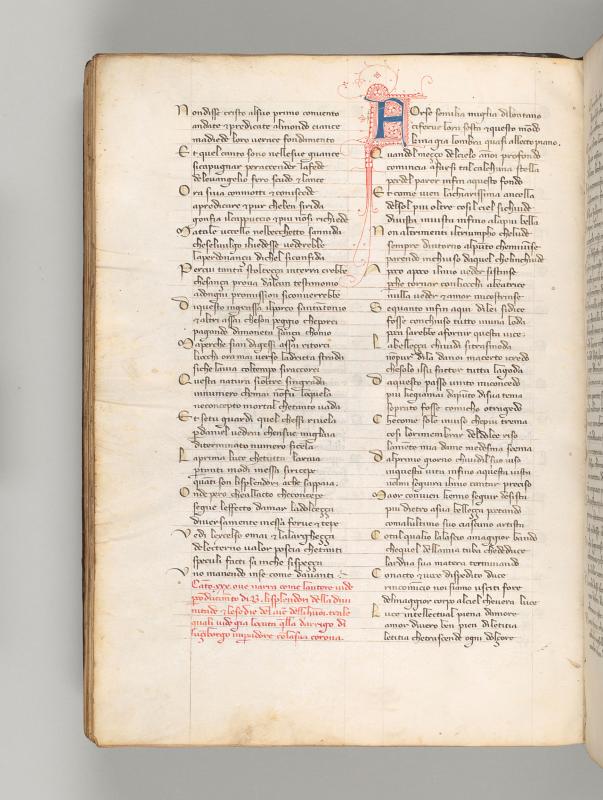 Non disse cristo alsuo primo conuento
andate & predicate almondo ciance
madiede loro uerace fondamento
Et quel tanto sono nellesue guance
sicapugnar peraccender lafede
deleuangelio fero scudo & lance
Ora siua conmotti & coniscede
apredicare & pur cheben sirida
gonfia ilcappuccio & piu nonsi richiede
Matale uccello nelbecchetto sannida
cheseluulgo iluedesse uederebbe
laperdonanza dichel siconfida
Percui tanta stoltezza interra crebbe
chesanza proua dalcun testamonio
adongni promission siconuerrebbe
Diquesto ingrassa ilporco santantonio
& altri assai cheson peggio cheporci
pagando dimoneta sanza chonio
Maperche sian digressi assai ritorci
liocchi ora mai uerso ladricta strada
siche lauia coltempo siraccorci
Questa natura sioltre singrada
innumero chemai nonfu loquela
neconcepto mortal chetanto uada
Et setu guardi quel chessi riuela
perdaniel uedrai chensue migliaia
diterminato numero sicela
Laprima luce chetutta laraia
pertanti modi inessa siricepe
quanti son lisplendori ache sappaia
Onde pero cheallacto checoncepe
segue laffecto damar ladolcezza
diuersamente inessa ferue & tepe
Vedi leccelso omai & lalarghezza
deletterno ualor poscia chetanti
speculi facti sa inche sispezza
Vno manendo inse come dauanti
Cato xxx. oue narra come lautore uide
perducimento di B. lisplendori della diui
nitade & lesedie del
quali uide gia
luzinborgo imperadore colasua corona.
Forse semilia miglia dilontano
ciferue lora sesta & questo mondo
kina gia lombra quasi allecto piano
Quandil mezzo delcielo anoi profondo
comincia afarsi tal calchuna stella
perdel parer infin aquesto fondo
Et come uien lachiarissima ancella
delsol piu oltre cosi ciel sichiude
diuista inuista infino alapiu bella
Non altrimenti iltriumpho cheludе
sempre dintorno alpunto chemiuinse
parendo inchiuso daquel chelinchiude
Apoco apoco ilmio ueder sistinse
perche tornar conliocchi abeatrice
nulla ueder & amor micostrinse
Sequanto infin aqui dilei sidice
fosse conchiuso tutto inuna loda
poco sarebbe afornir questa uice
Labellezza chiuidi sitrasmoda
nonpur dila danoi macerto iocredo
chesolo ilsu factor tutta lagoda
Daquesto passo uinto miconcedo
piu kegiamai dapunto disua tema
soprato fosse comicho otragedo
Chcome sole inuiso chepiu trema
cosi lorimembrar deldolce riso
lamente mia dame medesma scema
Dalprimo giorno chiuidil suo uiso
inquesta uita infino aquesta uista
nelmi seguir almio cantar preciso
Maor conuien kemio seguir desista
piu dietro asua bellezza poetando
comalultimo suo ciascuno artista
Cotal qualio lalascio amaggior bando
chequel dellamia tuba chedduce
lardua sua matera terminando
Conacto & uoce dispedito duce
rincomincio noi siamo usciti fore
delmaggior corpo alciel chepura luce
Luce intellectual piena damore
amor diuero ben pien diletitia
letitia chetrascende ogni dolzore